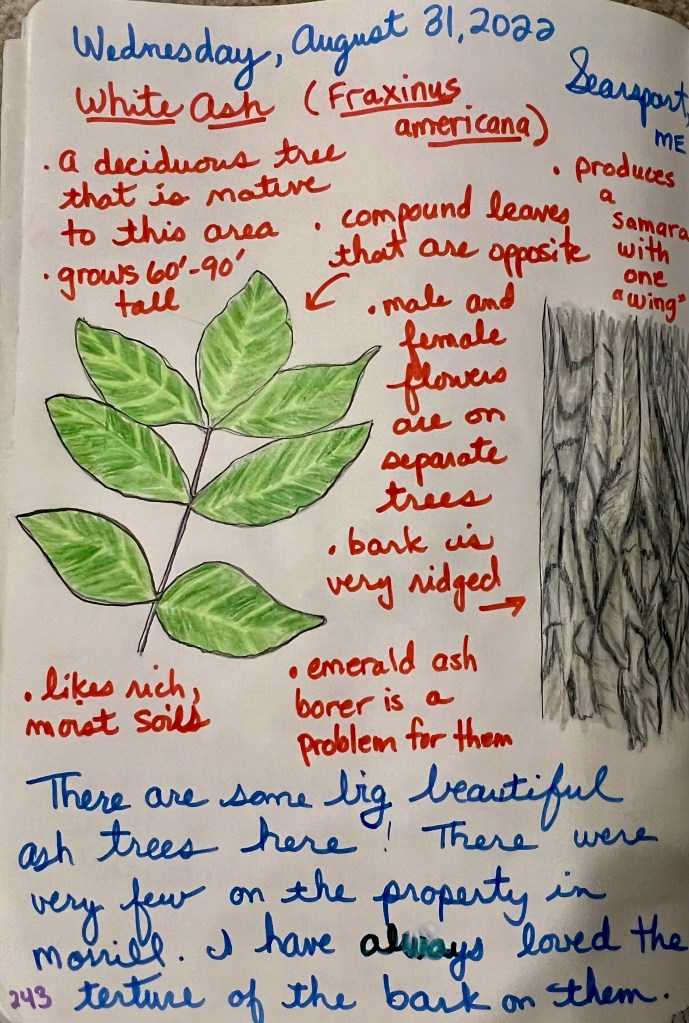 Wednesday, August 31, 2022
Searsport,
ME
White Ash (Fraxinus
americana)
• a deciduous tree
that is native
to this area
• grows 60'-90'
tall
• compound leaves
that are opposite
• produces
a
samara
with
one
"wing"
• male and
female
flowers
are on
separate
trees
• bark is
very ridged
• likes rich,
moist soils
• emerald ash
borer is a
problem for them
There are some big beautiful
ash trees here! There were
very few on the property in
Morrill. I have always loved the
texture of the bark on them.
243